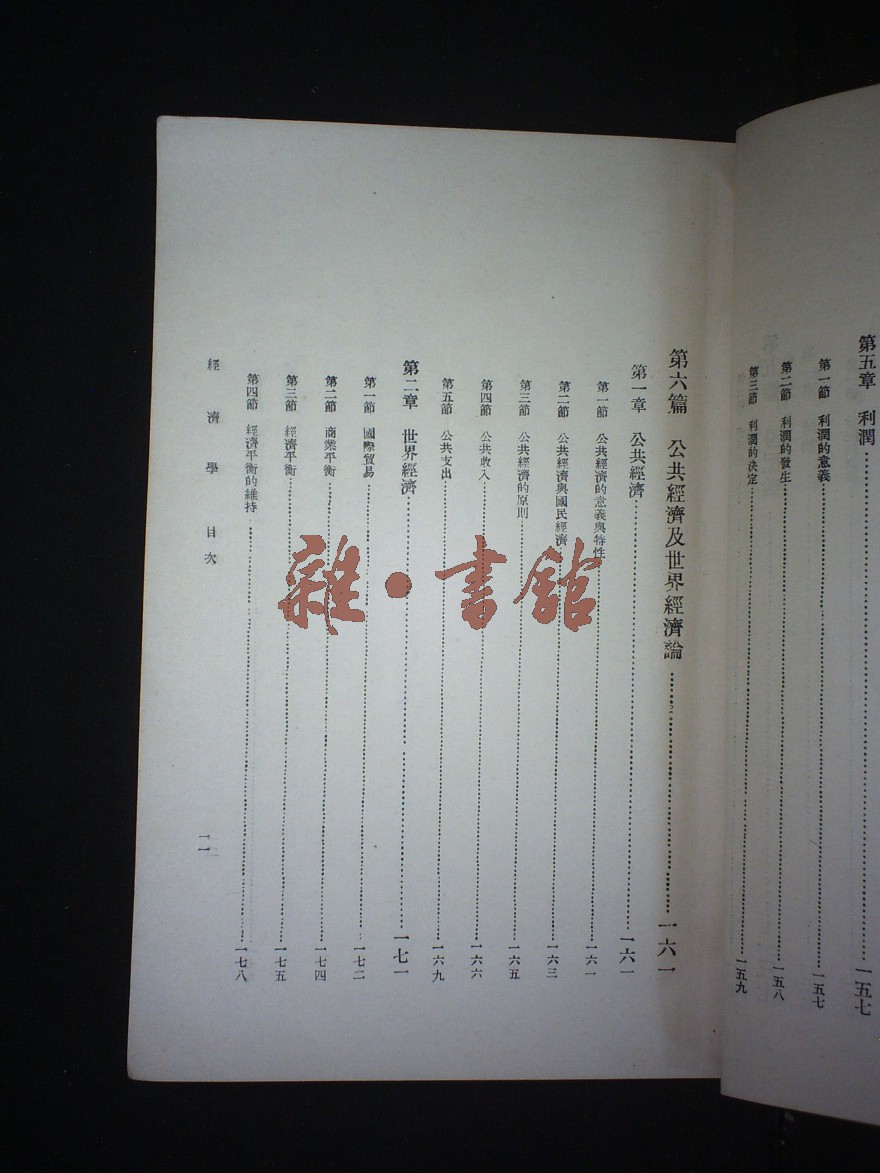 第五章 利潤……一五七
第一節 利潤的意義……一五七
第二節 利潤的發生……一五八
第三節 利潤的決定……一五九
第六篇 公共經濟及世界經濟論……一六一
第一章 公共經濟……一六一
第一節 公共經濟的意義與特性……一六一
第二節 公共經濟與國民經濟……一六三
第三節 公共經濟的原則……一六五
第四節 公共收入……一六六
第五節 公共支出……一六九
第二章 世界經濟……一七一
第一節 國際貿易……一七二
第二節 商業平衡……一七四
第三節 經濟平衡……一七五
第四節 經濟平衡的維持……一七八
經濟學 目次
一一
雜·書館